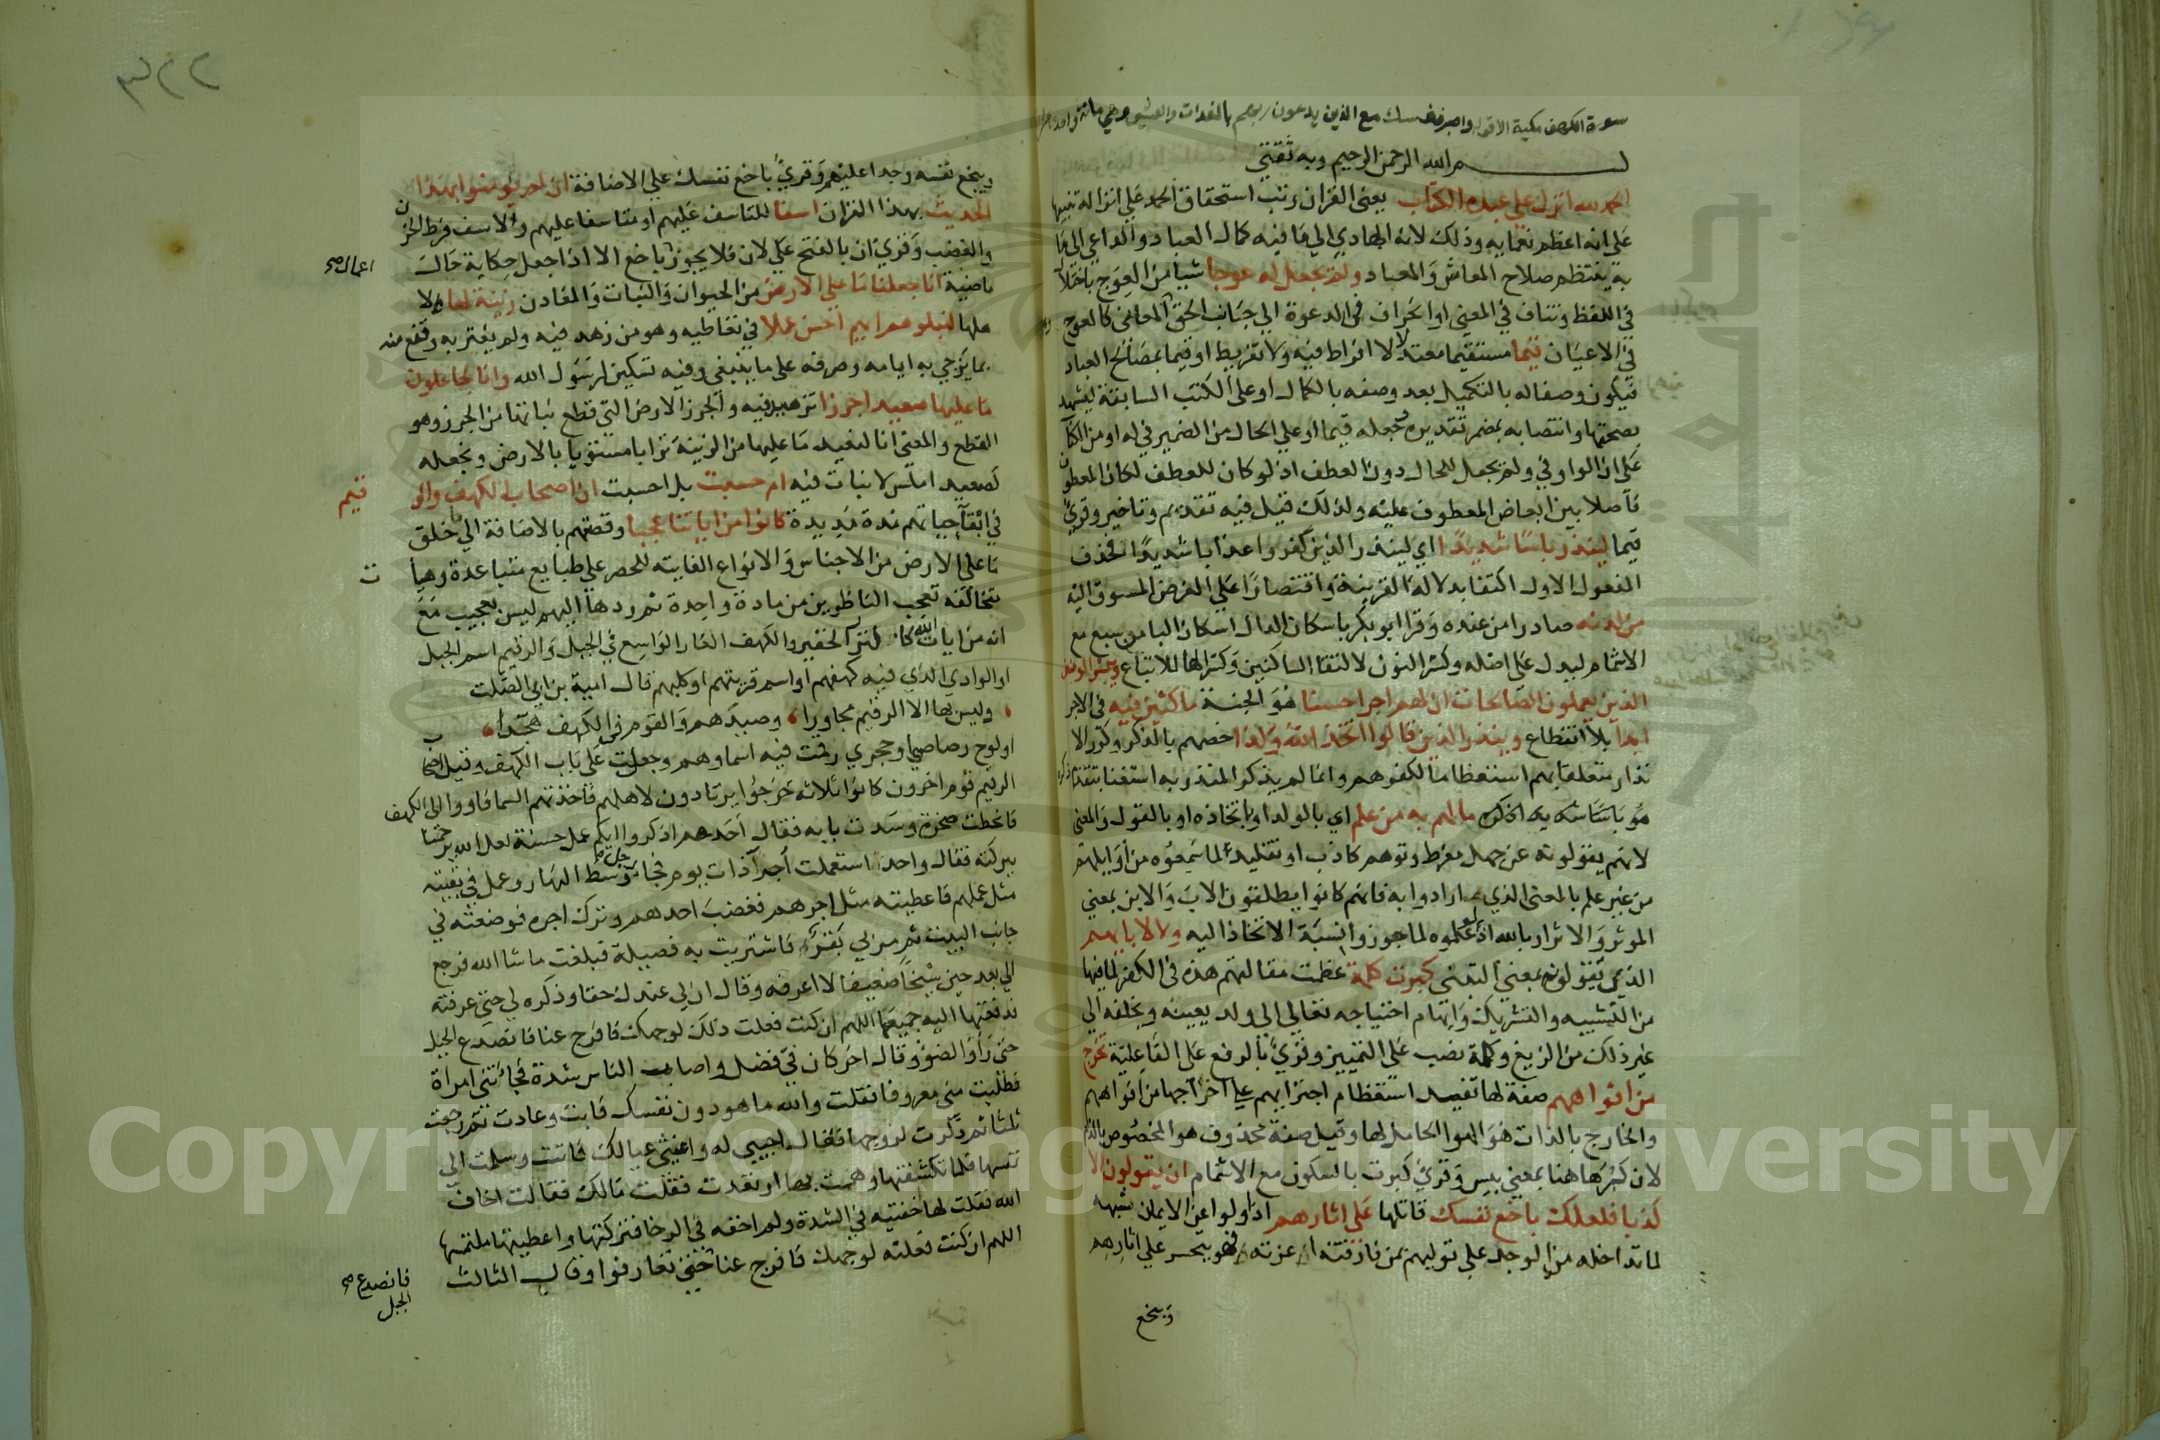 سورة الكهف مكية الا قوله واصبر نفسك مع الذين يدعون ربهم بالغداة والعشي وهي مائة واحدى عشر
بسم الله الرحمن الرحيم وبه ثقتي
الحمد لله انزل على عبده الكتاب يعنى القرآن رتب استحقاق الحمد على انزاله تنبيها
على انه اعظم نعمايه وذلك لانه الهادي الى ما فيه كمال العباد والداعي الى ما
به ينتظم صلاح المعاش والمعاد ولم يجعل له عوجا شيا من العوج باختلال
في اللفظ وتناف في المعنى او انحراف في الدعوة الى جناب الحق المعانى كالعوج
في الاعيان قيما مستقيما معتدلا لا افراط فيه ولا تفريط او قيما بمصالح العباد
فيكون وصفا له بالتكميل بعد وصفه بالكمال او على الكتب السابقة يشهد
بصحتها وانتصابه بمضمر تقديره جعله قيما او على الحال من الضمير في له او من الكتاب
على ان الواو في ولم يجعل للحال دون العطف اذ لو كان للعطف لكان المعطوف
فاصلا بين ابعاض المعطوف عليه ولذلك قيل فيه تقديم وتاخير وقرئ
قيما لينذر باسا شديدا اي لينذر الذين كفروا عذابا شديدا فحذف
المفعول الاول اكتفا بدلالة القرينة واقتصارا على الغرض المسوق اليه
من لدنه صادرا من عنده وقرا ابو بكر باسكان الدال اسكان الباء من سبع مع
الاشمام ليدل على اصله وكسر النون لالتقا الساكنين وكسر الها للاتباع ويبشر المومنين
الذين يعملون الصالحات ان لهم اجرا حسنا هو الجنة ماكثين فيه في الاجر
ابدا بلا انقطاع وينذر الذين قالوا اتخذ الله ولدا خصهم بالذكر وكرر الا
نذار متعلقا بهم استعظاما لكفرهم وانما لم يذكر المنذر به استغنا بتقدم
ذكره
ما لهم به من علم اي بالولد او باتخاذه او بالقول والمعنى
لانهم يقولونه عن جهل مفرط وتوهم كاذب او تقليد لما سمعوه من اوايلهم
من غير علم بالمعنى الذي ارادوا به فانهم كانوا يطلقون الاب والابن بمعنى
الموثر والاثر او بالله اذ لو علموه لما جوزوا نسبة الاتخاذ اليه ولا لابايهم
الذين تقولوه بمعنى التبني كبرت كلمة عظمت مقالتهم هذه في الكفر لما فيها
من التشبيه والتشريك وايهام احتياجه تعالى الى ولد يعينه ويخلفه الى
غير ذلك من الزيغ وكلمة نصب على التمييز وقرئ بالرفع على الفاعلية تخرج
من افواههم صفة لها تفيد استعظام اجترايهم على اخراجها من افواههم
والخارج بالذات هو الهوا الحامل لها وقيل صفة محذوف هو المخصوص بالذم
لان كبر هاهنا بمعنى بيس وقرئ كبرت بالسكون مع الاشمام ان يقولون الا
كذبا فلعلك باخع نفسك قاتلها على اثارهم اذا ولوا عن الايمان شبهه
لما تداخله من الوجد على توليهم بمن فارقته اعزته فهو يتحسر على اثارهم
ويبخع
٣٢٢
ويبخع نفسه وجدا عليهم وقرئ باخع نفسك على الاضافة ان لم يومنوا بهذا
الحديث بهذا القران اسفا للتاسف عليهم او متاسفا عليهم والاسف فرط الحزن
والغضب وقرئ ان بالفتح على لان فلا يجوز باخع الا اذا جعل حكاية حال
اعمال صح
ماضية انا جعلنا ما على الارض من الحيوان والنبات والمعادن زينة لها ولا
هلها لنبلوهم ايهم احسن عملا في تعاطيه وهو من زهد فيه ولم يغتر به وقنع منه
بما يزجي به ايامه وصرفه على ما ينبغي وفيه تسكين لرسول الله وانا لجاعلون
ما عليها صعيدا جرزا تزهيد فيه والجرز الارض التى قطع نباتها من الجرز وهو
القطع والمعنى انا لنعيد ما عليها من الزينة ترابا مستويا بالارض ونجعله
كصعيد املس لا نبات فيه ام حسبت بل احسبت ان اصحاب الكهف والر
قيم
في ابقا حياتهم مدة مديدة كانوا من اياتنا عجبا وقصتهم بالاضافة الى خلق
ما على الارض من الاجناس والانواع الفايته للحصر على طبايع متباعدة وهيا
ت
متخالفه تعجب الناظرين من مادة واحدة ثم ردها اليهم ليس بعجيب مع
انه من ايات الله كالنزر الحقير والكهف الغار الواسع في الجبل والرقيم اسم الجبل
او الوادي الذي فيه كهفهم او اسم قريتهم او كلبهم قال امية بن ابي الصلت
وليس بها الا الرقيم مجاورا وصيدهم والقوم في الكهف هجدا
او لوح رصاصي او حجري رقمت فيه اسماوهم وجعلت على باب الكهف وقيل اصحاب
الرقيم قوم اخرون كانوا ثلاثة خرجوا يرتادون لاهلهم فاخذتهم السما فاووا الى الكهف
فانحطت صخرة وسدت بابه فقال احدهم اذكروا ايكم عمل حسنة لعل الله يرحمنا
ببركته فقال واحد استعملت اجرآ ذات يوم فجا رجل وسط النهار وعمل في بقيته
مثل عملهم فاعطيته مثل اجرهم فغضب احدهم وترك اجره فوضعته في
جانب البيت ثم مر بي بقر فاشتريت به فصيلة فبلغت ما شا الله فرجع
الي بعد حين شيخا ضعيفا لا اعرفه وقال ان لي عندك حقا وذكره لي حتى عرفته
فدفعتها اليه جميعا اللهم ان كنت فعلت ذلك لوجهك فافرج عنا فانصدع الجبل
حتى راوا الضوء وقال اخر كان في فضل واصابت الناس شدة فجاءتني امراة
فطلبت مني معروفا فقلت والله ما هو دون نفسك فابت وعادت ثم رجعت
ثلثا ثم ذكرت لزوجها فقال اجيبي له واغيثي عيالك فاتت وسلمت الي
نفسها فلما تكشفتها وهممت بها ارتعدت فقلت مالك فقالت اخاف
الله فقلت لها خفتيه في الشدة ولم اخفه في الرخا فتركتها واعطيتها ملتمسها
اللهم ان كنت فعلته لوجهك فافرج عنا حتى تعارفوا وقال الثالث
فانصدع صح
الجبل
Copyright © King Saud University